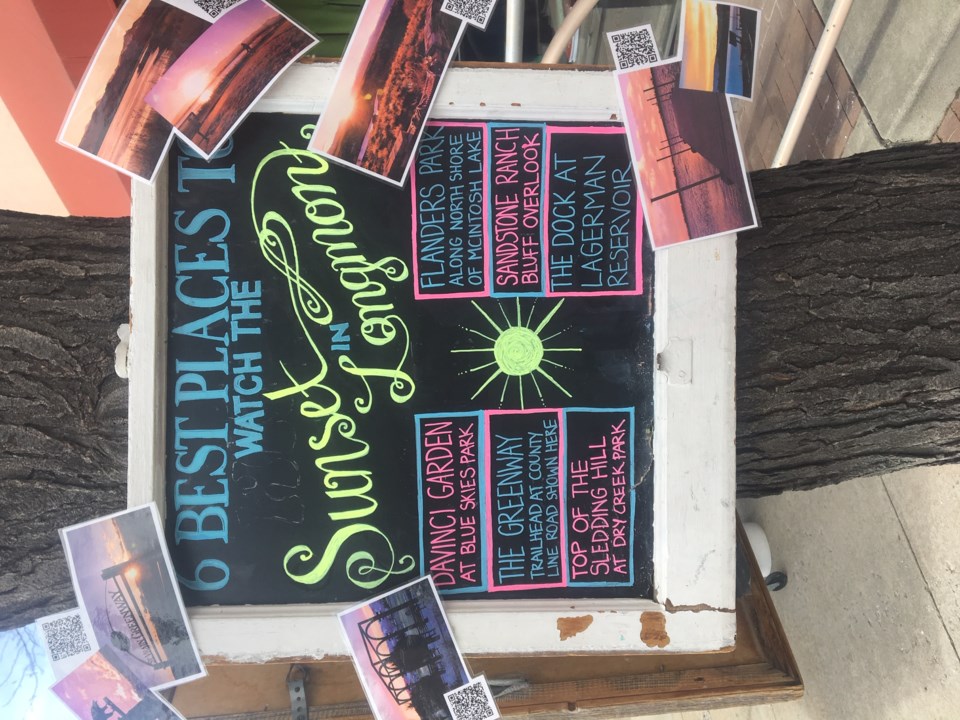 6 BEST PLACES TO
WATCH THE
Sunset
IN
Longmont
DAVINCI GARDEN
AT BLUE SKIES PARK
THE GREENWAY
TRAILHEAD AT COUNTY
LINE ROAD SHOWN HERE
TOP OF THE
SLEDDING HILL
AT DRY CREEK PARK
FLANDERS PARK
ALONG NORTH SHORE
OF MCINTOSH LAKE
SANDSTONE RANCH
BLUFF OVERLOOK
THE DOCK AT
LAGERMAN
RESERVOIR